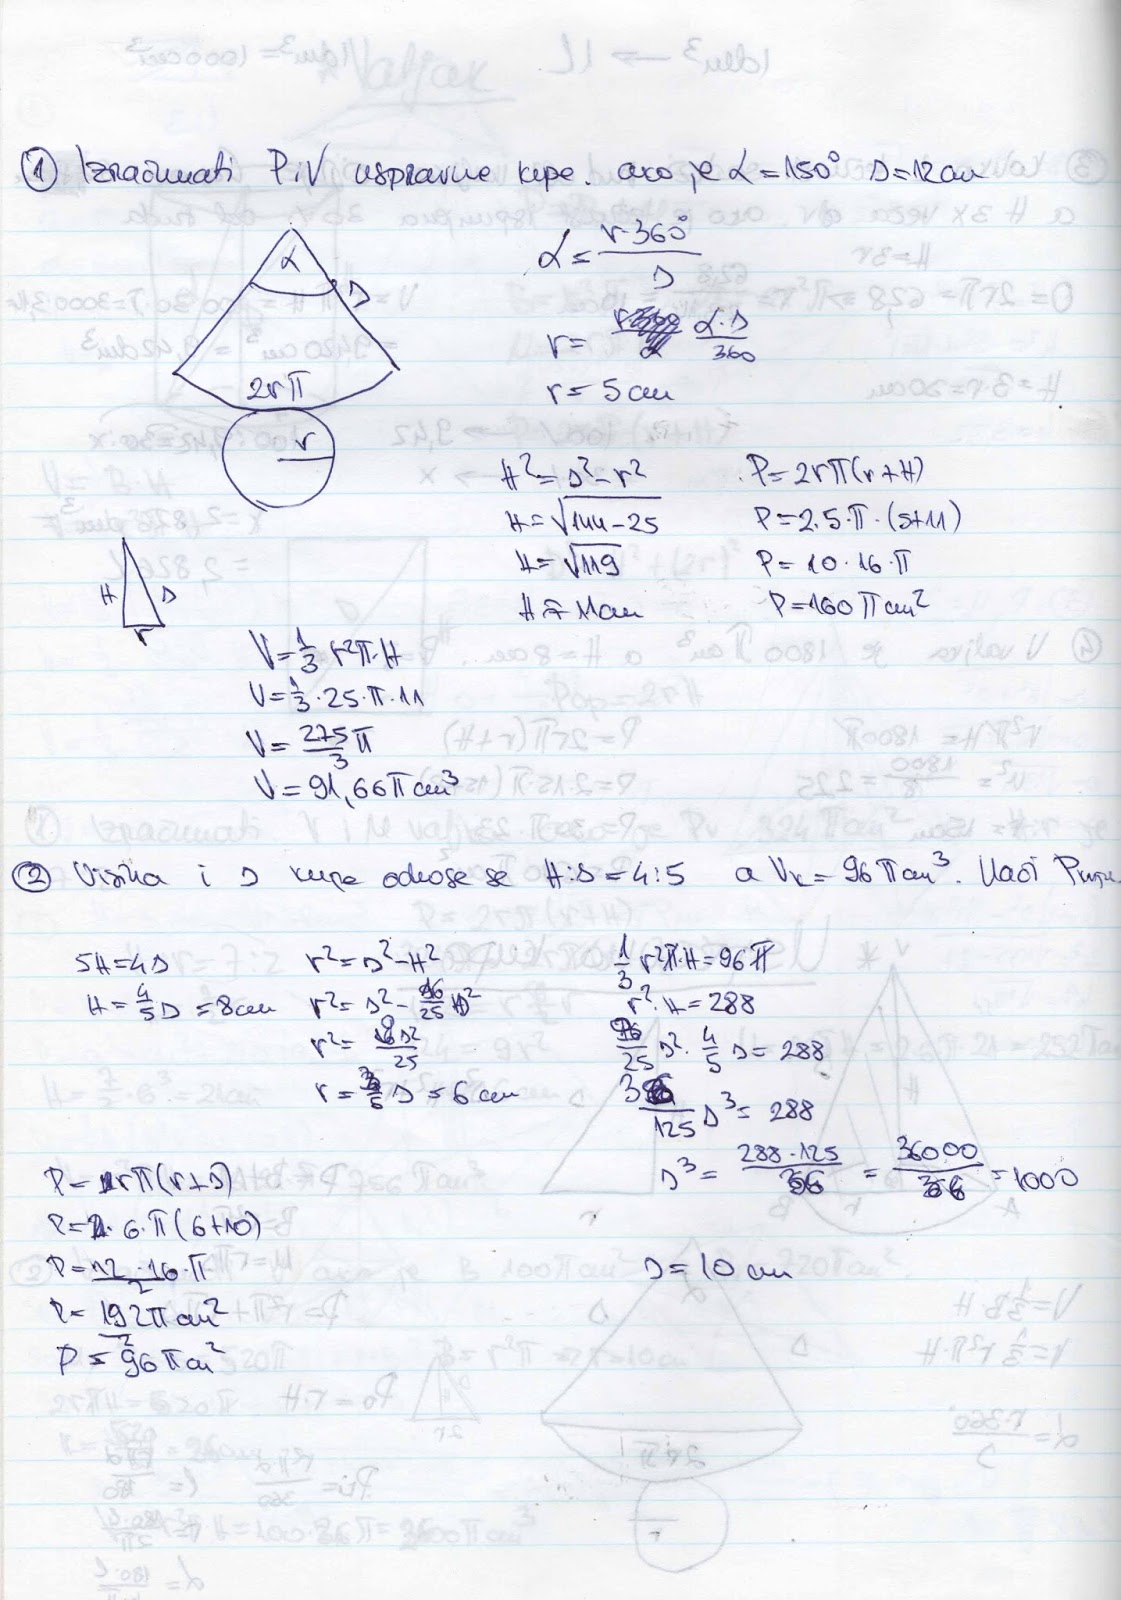 ① Izračunati P i V uspravne kupe. ako je α = 150° s = 12 cm
α
s
2rπ
r
α = r·360° / s
r = α·s / 360
r = 5 cm
H² = s² - r²
H = √144-25
H = √119
H ≈ 11 cm
P = 2rπ(r+H)
P = 2·5·π·(5+11)
P = 10·16·π
P = 160π cm²
H
s
r
V = 1/3 r²π·H
V = 1/3·25·π·11
V = 275/3 π
V = 91,66π cm³
② Visina i s kupe odnose se H:s = 4:5 a Vk = 96π cm³. Naći Pkupe.
5H = 4s
H = 4/5 s = 8 cm
r² = s² - H²
r² = s² - 16/25 s²
r² = 9s²/25
r = 3/5 s = 6 cm
1/3 r²π·H = 96π
r²·H = 288
9/25 s²·4/5 s = 288
36/125 s³ = 288
s³ = 288·125/36 = 36000/36 = 1000
s = 10 cm
P = rπ(r+s)
P = 6·π(6+10)
P = 12·16·π/2
P = 192π cm²/2
P = 96π cm²